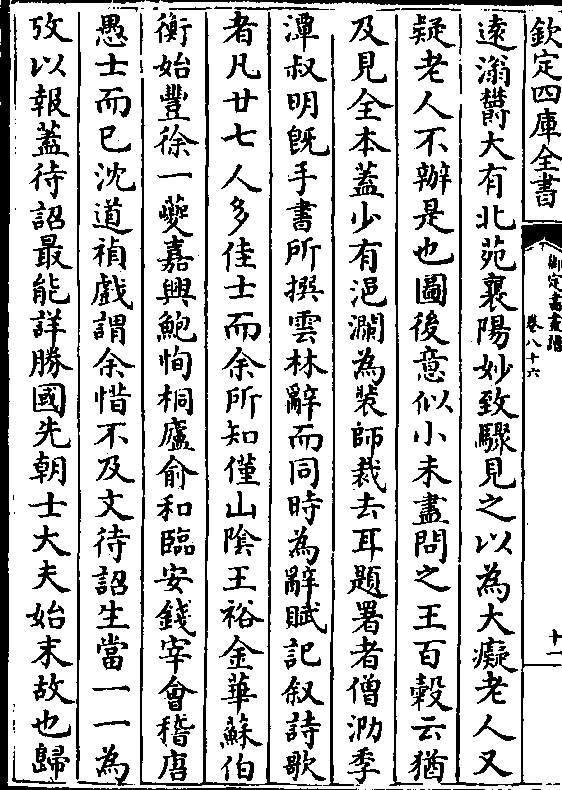 欽定四庫全書
御定書畫譜
卷八十六
十一
遠滃欝大有北苑襄陽妙致驟見之以為大癡老人又
疑老人不辦是也圖後意似小未盡問之王百榖云猶
及見全本葢少有浥瀾為裝師裁去耳題署者僧泐季
潭叔明旣手書所撰雲林辭而同時為辭賦記叙詩歌
者凡廿七人多佳士而余所知僅山隂王裕金華蘇伯
衡始豐徐一夔嘉興鮑恂桐廬俞和臨安錢宰會稽唐
愚士而已沈道禎戲謂余惜不及文待詔生當一一為
攷以報葢待詔最能詳勝國先朝士大夫始末故也歸